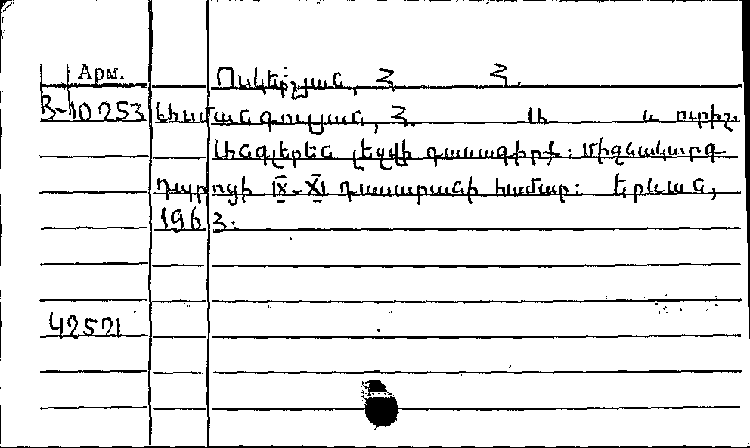 Арм.
Ոսկերչյան, Հ. Հ.
B-10253 Սիմոնգուլյան, Հ. և ուրիշ.
Անգլերեն լեզվի դասագիրք: Միջնակարգ
դպրոցի IX-XI դասարանի համար: Երևան,
1963.
42521